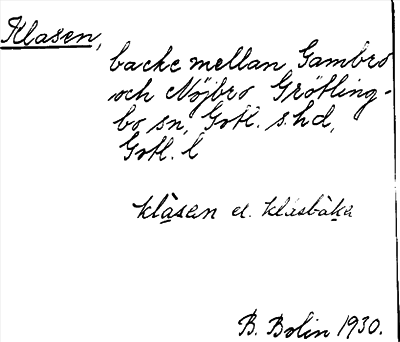 Klasen,
backe mellan Gambro
och Nöjbro Grötling-
bo sn, Gotl. s. hd,
Gotl. l
klàsen el. klásbàka
B. Bolin 1930.